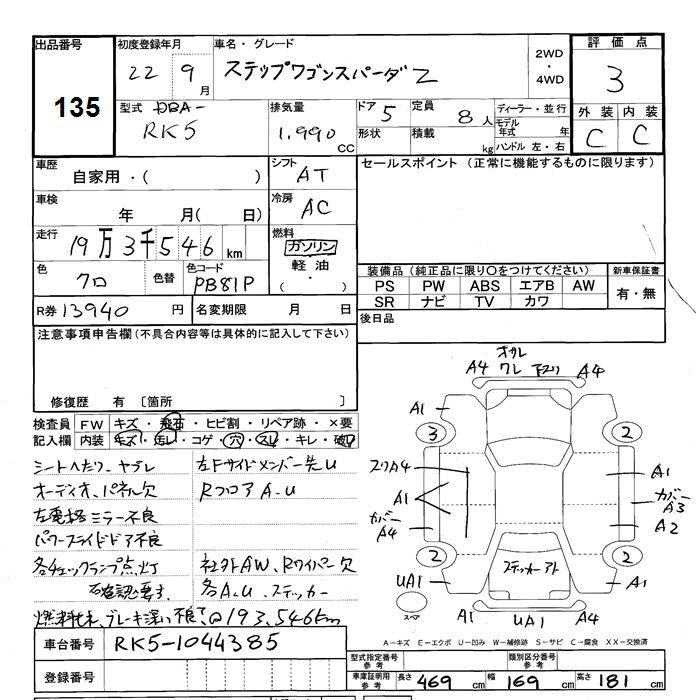 出品番号
135
初度登録年月
22 9月
車名・グレード
ステップワゴンスパーダZ
2WD
・
4WD
評価点
3
外装 内装
C C
型式 DBA-
RK5
排気量
1,990
CC
ドア 5
形状
定員 8人
積載 kg
ディーラー・並行
モデル年式 年
ハンドル 左・右
車歴
自家用・( )
車検
年 月(日)
走行
19万3千546km
色
クロ
色替
色コード
PB81P
シフト
AT
冷房
AC
燃料
ガソリン
・
軽油
・
( )
セールスポイント (正常に機能するものに限ります)
装備品 (純正品に限り○をつけてください)
PS PW ABS エアB AW
SR ナビ TV カワ
新車保証書
有・無
後日品
R券 13940円
名変期限 月 日
注意事項申告欄(不具合内容等は具体的に記入して下さい)
修復歴 有 〔箇所 〕
検査員記入欄
FW キズ・飛石・ヒビ割・リペア跡・×要
内装 キズ・汚レ・コゲ・穴・スレ・キレ・破レ
シートヘタリ、ヤブレ
オーディオ、パネル欠
左電格ミラー不良
パワースライドドア不良
各チェックランプ点灯
確認要す
左Fサイドメンバー先U
RフロアA.U
社外AW、Rワイパー欠
各A.U、ステッカー
@193,546km
オサレ
ワレ
A4
A4
A1
3
2
A1
A1
カバー
A4
カバー
A3
A2
2
2
UA1
A1
ステッカーアト
スペア
A1
UA1
A4
A-キズ E-エクボ U-凹み W-補修跡 S-サビ C-腐食 XX-交換済
車台番号
RK5-1044385
登録番号
型式指定番号
参考
類別区分番号
参考
車庫証明用
参考
長さ 469 cm
幅 169 cm
高さ 181 cm